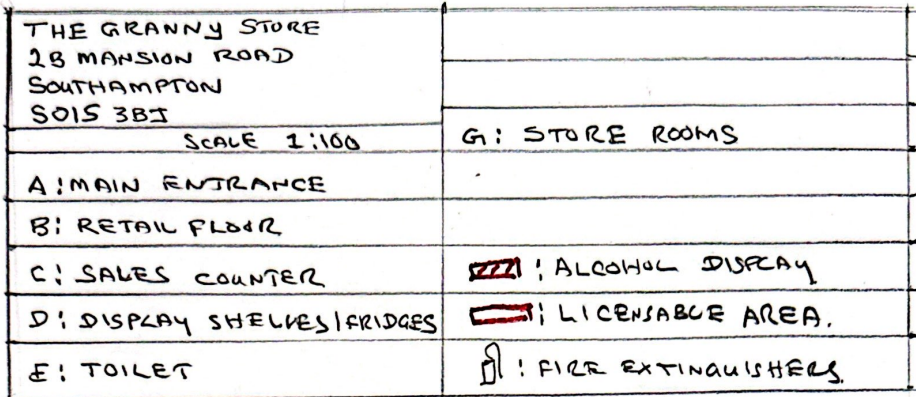 THE GRANNY STORE
2B MANSION ROAD
SOUTHAMPTON
SO15 3BJ
SCALE 1:100
A: MAIN ENTRANCE
B: RETAIL FLOOR
C: SALES COUNTER
D: DISPLAY SHELVES/FRIDGES
E: TOILET
G: STORE ROOMS
: ALCOHOL DISPLAY
: LICENSABLE AREA.
: FIRE EXTINGUISHERS.